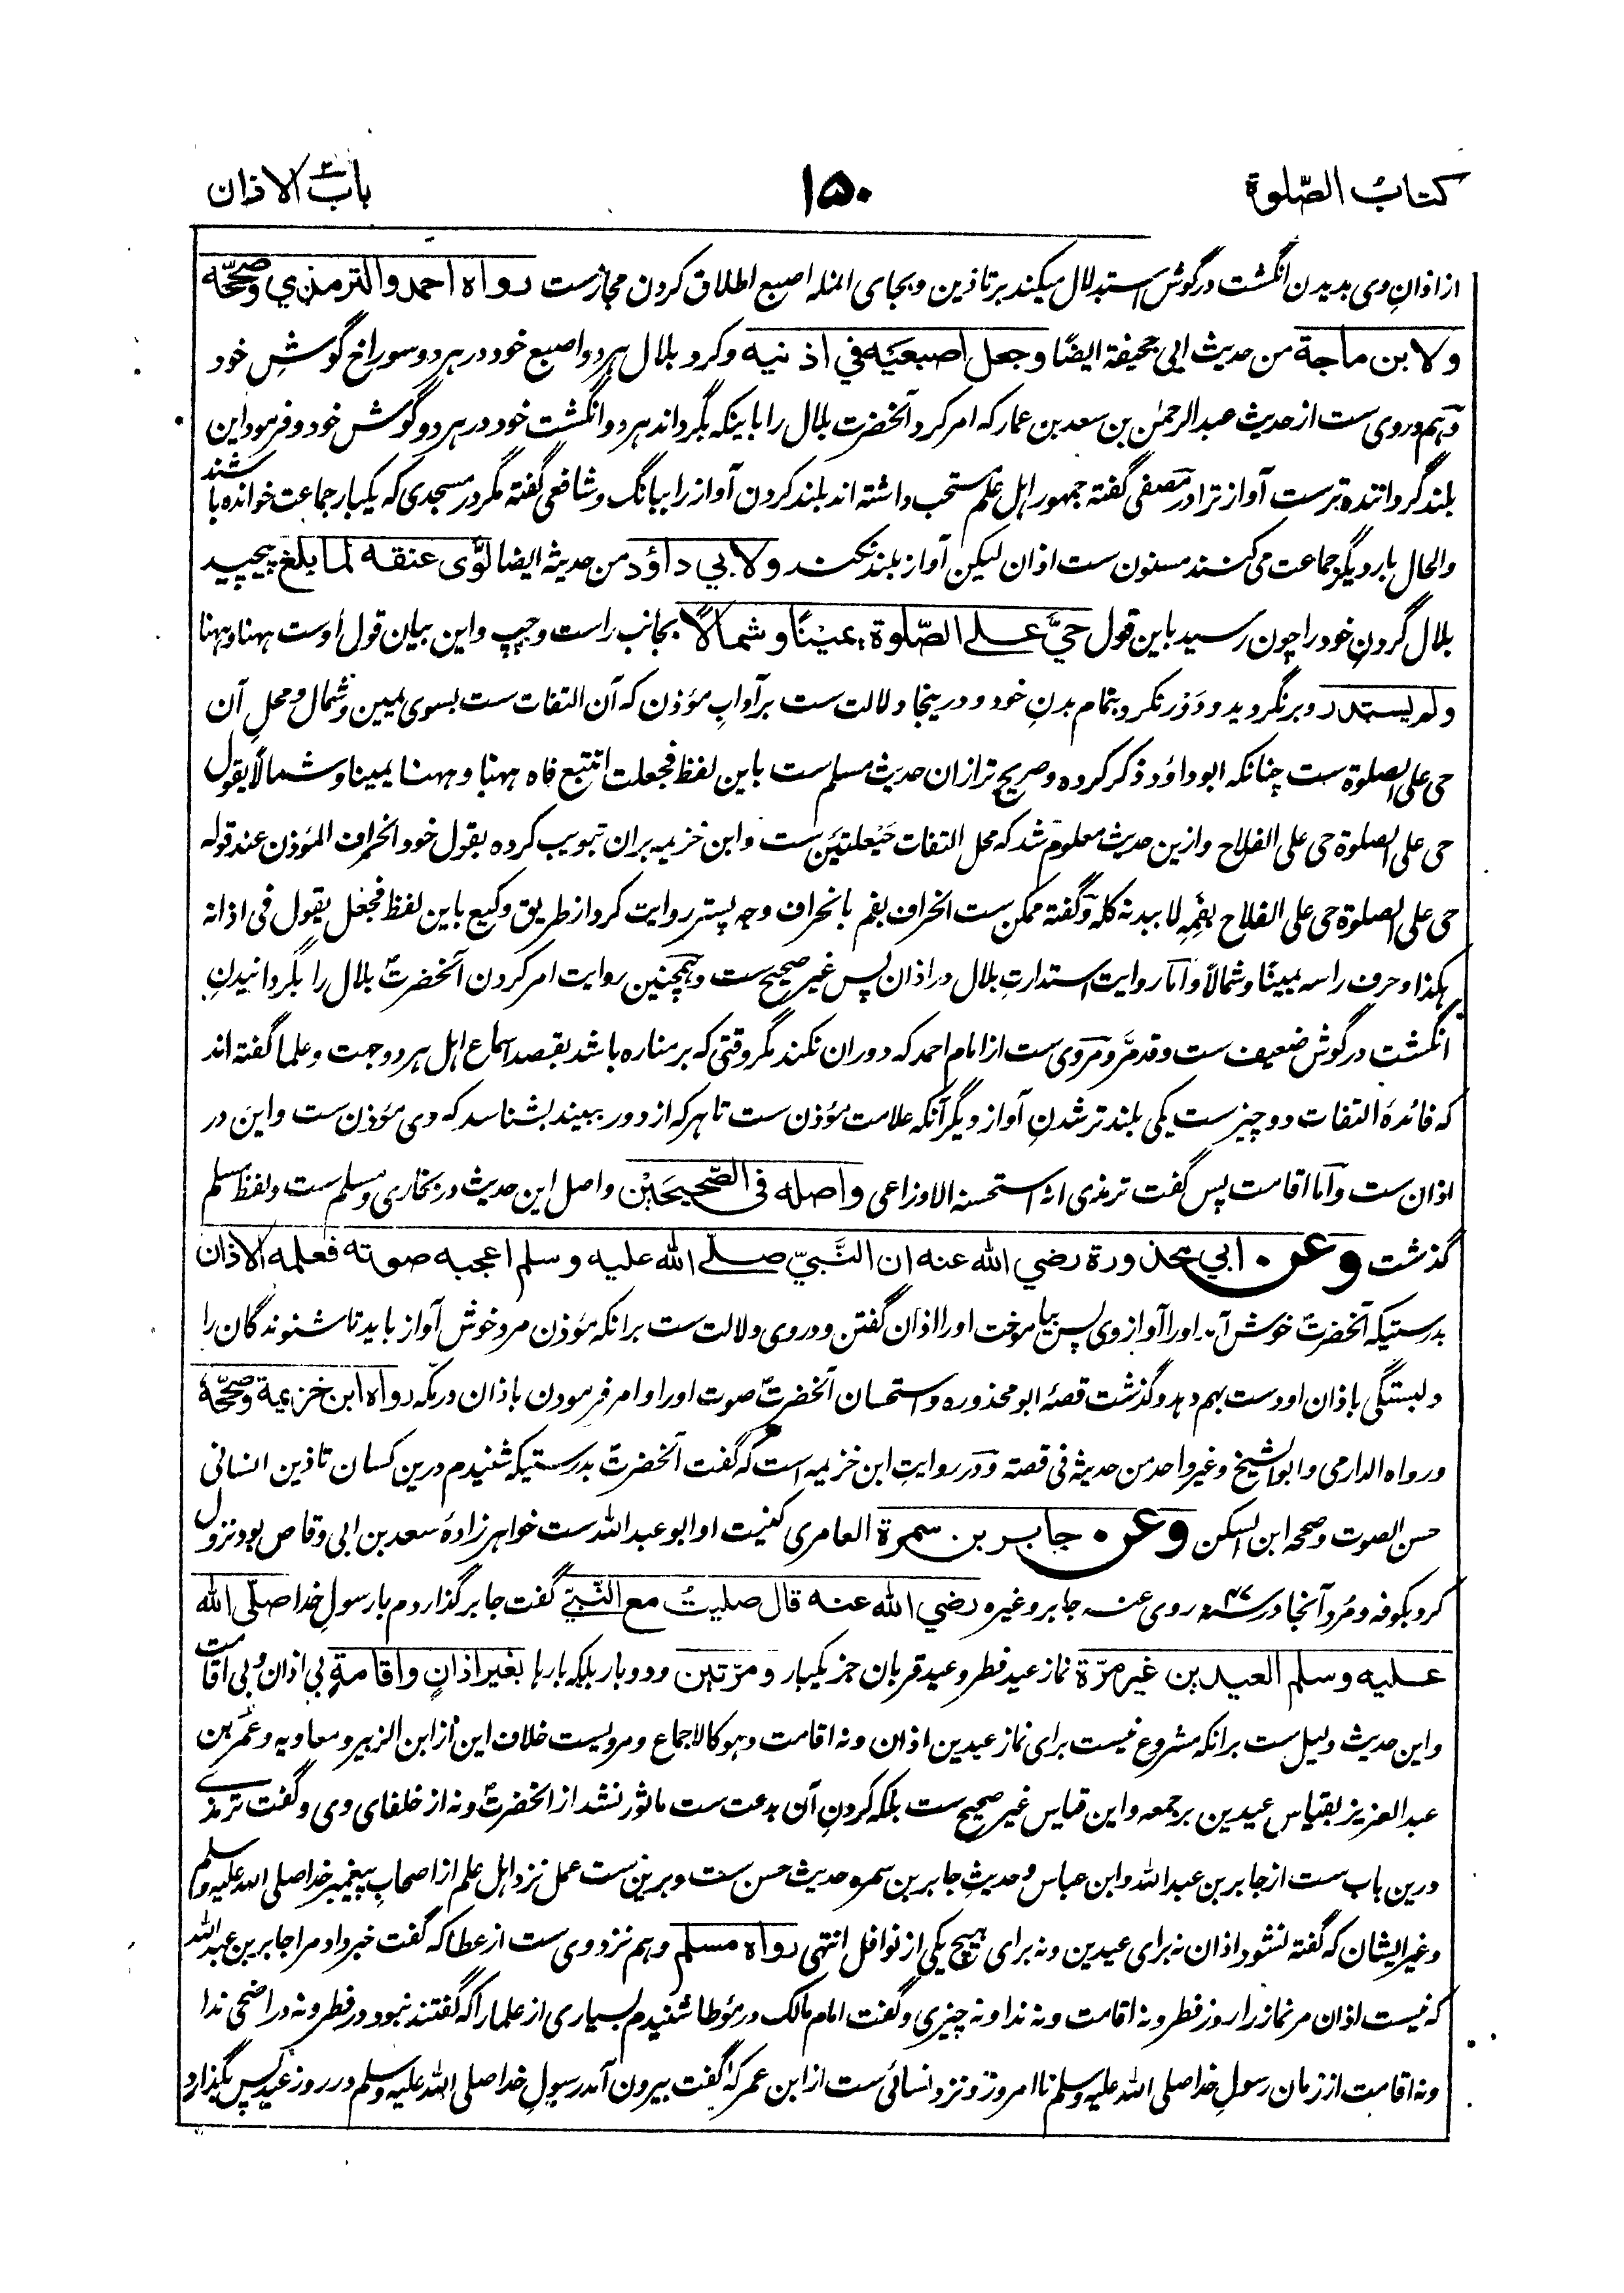 کتاب الصّلوة
۱۵۰
باب الاذان
از اذانِ وی بدیدن انگشت در گوش استدلال میکند بر تاذین و بجای انمله اصبع اطلاق کردن مجازست رواه احمد والترمذي وصححّه
ولابن ماجة من حدیث ابی جحیفة ایضًا وجعل اصبعیَه في اذنیه و کرد بلال هر دو اصبع خود در هر دو سوراخ گوشِ خود
وهم مروی ست از حدیث عبدالرحمٰن بن سعد بن عمار که امر کرد آنحضرت بلال را باینکه بگرداند هر دو انگشت خود در هر دو گوش خود و فرمود این
بلند گرداننده ترست آواز ترا در مصفی گفته جمهور اهل علم مستحب داشته اند بلند کردن آواز را ببانگ و شافعی گفته مگر در مسجدی که یکبار جماعت خوانده باشند
والحال بار دیگر جماعت می کنند مسنون ست اذان لیکن آواز بلند نکنند ولابي داؤد من حدیثه ایضا لَوّٰی عنقه لما بلغ پیچید
بلال گردنِ خود را چون رسید باین قول حيَّ علے الصّلوة یمینًا وشمالًا بجانب راست وچپ و این بیان قول اوست ههنا وههنا
ولم یستدر و برنگردید و دَوْر نکرد بتمام بدنِ خود و درینجا دلالت ست بر آدابِ مؤذن که آن التفات ست بسوی یمین و شمال و محلِ آن
حی علی الصلوة ست چنانکه ابوداؤد ذکر کرده و صریح تر ازان حدیث مسلم ست باین لفظ فجعلت اتتبع فاه ههنا وههنا یمینا وشمالًا یقول
حی علی الصلوة حی علی الفلاح و ازین حدیث معلوم شد که محل التفات حَیْعلتَیْن ست و ابن خزیمه بران تبویب کرده بقول خود انحراف المؤذن عند قوله
حی علی الصلوة حی علی الفلاح بفَمِهِ لا ببدنه کله و گفته ممکن ست انحراف بفم بانحراف وجه پستر روایت کرد از طریق وکیع باین لفظ فجعل یقول فی اذانه
هکذا وحرف راسه یمینًا وشمالًا و اما روایت استدارتِ بلال در اذان پس غیر صحیح ست و همچنین روایت امر کردن آنحضرتؐ بلال را بگردانیدنِ
انگشت در گوش ضعیف ست وقد مَرَّ و مروی ست از امام احمد که دوران نکند مگر وقتی که بر مناره باشد بقصد اسماع اهل هر دو جهت و علما گفته اند
که فائدهٔ التفات دو چیز ست یکی بلند تر شدنِ آواز دیگر آنکه علامت مؤذن ست تا هر که از دور ببیند بشناسد که وی مؤذن ست و این در
اذان ست و اما اقامت پس گفت ترمذی انه استحسنه الاوزاعی واصله فی الصّحیحَیْن و اصل این حدیث در بخاری و مسلم ست و لفظ مسلم
گذشت وعن ابي محذورة رضي الله عنه ان النَّبيّ صلّے الله علیه وسلم اعجبه صوته فعلمه الاذان
بدرستیکه آنحضرتؐ خوش آمد او را آواز وی پس بیاموخت او را اذان گفتن و در وی دلالت ست برانکه مؤذن مرد خوش آواز باید تا شنوندگان را
دلبستگی باذان او دست بهم دهد و گذشت قصهٔ ابو محذوره و استحسان آنحضرتؐ صوت او را و امر فرمودن باذان در مکه رواه ابن خزیمة وصححّهٗ
ورواه الدارمی وابوالشیخ وغیر واحد من حدیثه فی قصة و در روایتِ ابن خزیمه است که گفت آنحضرتؐ بدرستیکه شنیدم درین کسان تاذین انسانی
حسن الصوت وصححه ابن السکن وعن جابر بن سمرة العامری کنیت او ابو عبدالله ست خواهرزادهٔ سعد بن ابی وقاص بود نزول
کرد بکوفه و مُرد آنجا در سنه ۷۴ روی عنه جابر وغیره رضي الله عنه قال صلیتُ مع النّبيّ گفت جابر گذاردم با رسولِ خدا صلّی الله
علیه وسلم العیدین غیر مرّة نماز عید فطر و عید قربان جز یکبار ومرّتین و دو بار بلکه بارها بغیر اذانٍ واقامةٍ بی اذان و بی اقامت
و این حدیث دلیل ست برانکه مشروع نیست برای نماز عیدین اذان و نه اقامت وهو کالاجماع و مرویست خلاف این از ابن الزبیر و معاویه و عمر بن
عبدالعزیز بقیاس عیدین بر جمعه و این قیاس غیر صحیح ست بلکه کردنِ آن بدعت ست ماثور نشد از آنحضرتؐ و نه از خلفای وی و گفت ترمذی
درین باب ست از جابر بن عبدالله و ابن عباس و حدیثِ جابر بن سمره حدیث حسن ست و برین ست عمل نزد اهل علم از اصحابِ پیغمبر خدا صلی الله علیه وسلم
وغیر ایشان که گفته نشود اذان نه برای عیدین و نه برای هیچ یکی از نوافل انتهی رواه مسلم و هم نزد وی ست از عطا که گفت خبر داد مرا جابر بن عبدالله
که نیست اذان مر نماز را روز فطر و نه اقامت و نه ندا و نه چیزی و گفت امام مالک در مؤطا شنیدم بسیاری از علما را که گفتند نبود در فطر و نه در اضحی ندا
و نه اقامت از زمان رسولِ خدا صلی الله علیه وسلم تا امروز و نزد نسائی ست از ابن عمر که گفت بیرون آمد رسولِ خدا صلی الله علیه وسلم در روز عید پس بگذارد